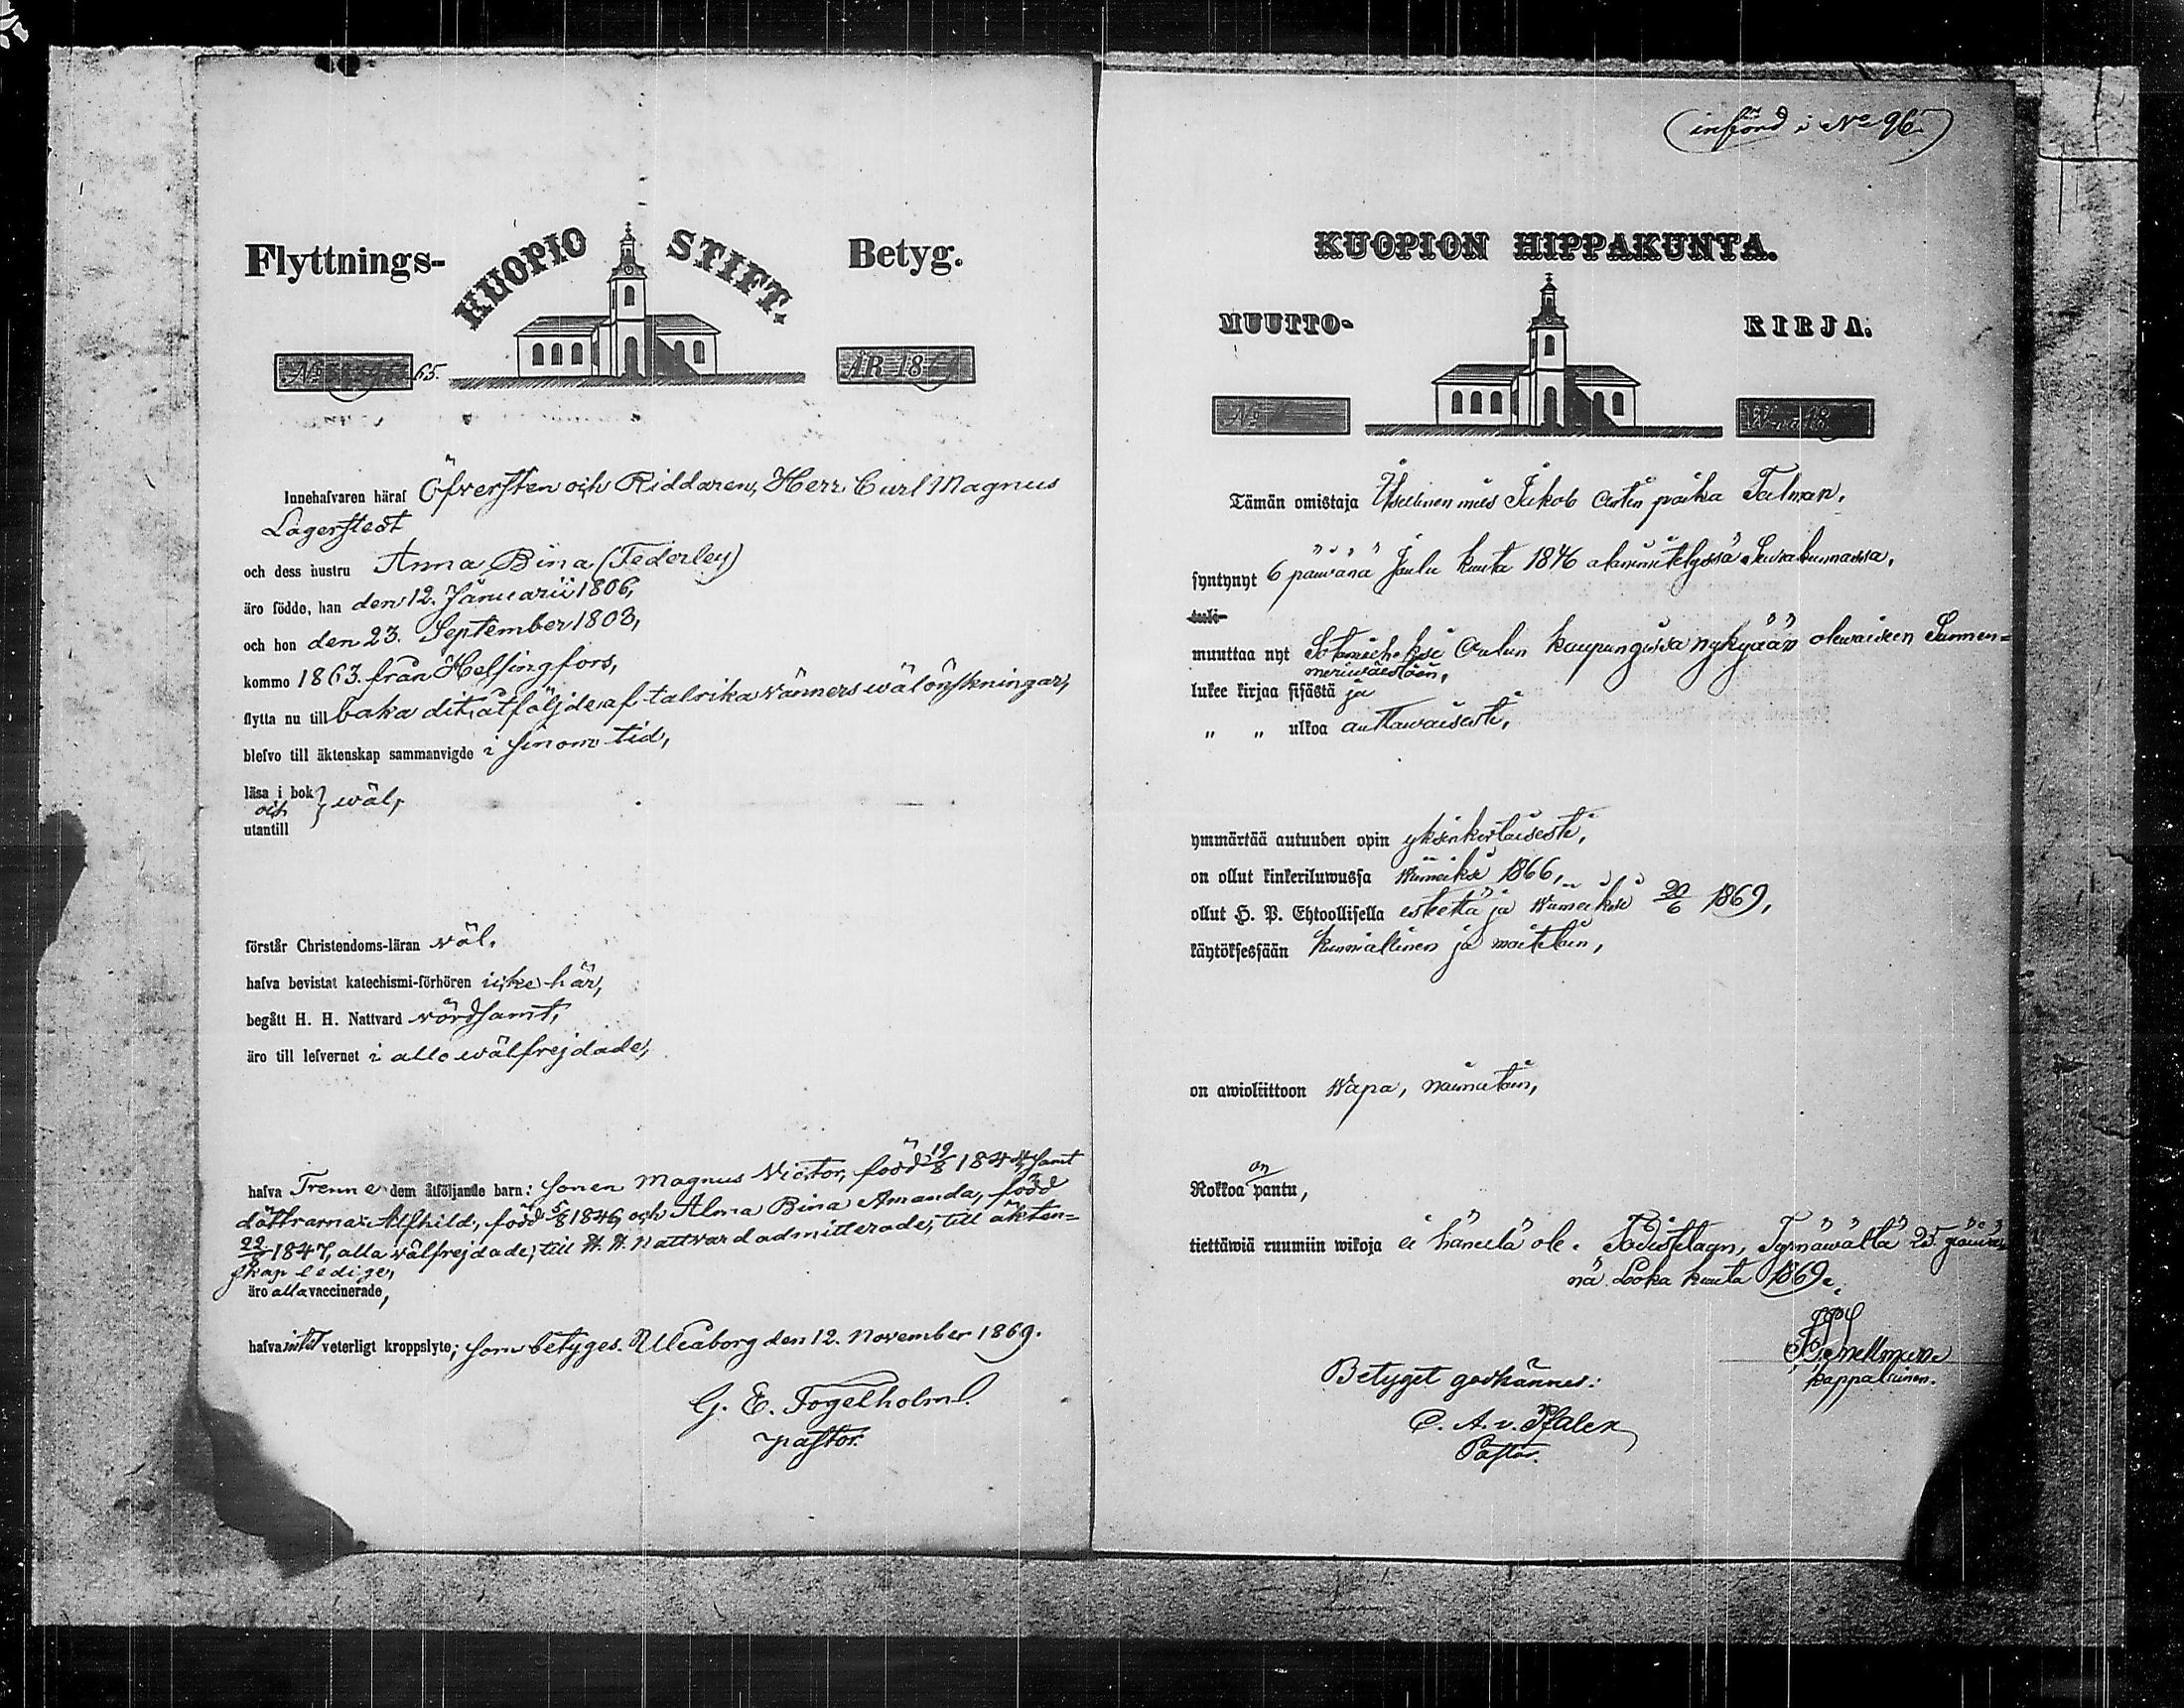 Flyttnings- KUOPIO STIFT. Betyg.
№ 65. ÅR 18
Innehafvaren häraf Öfversten och Riddaren, Herr Carl Magnus
Lagerstedt
och dess hustru Anna Bina (Federley)
äro födde, han den 12. Januarii 1806,
och hon den 23. September 1803,
kommo 1863. från Helsingfors,
flytta nu till baka dit, åtföljde af talrika vänners wälönskningar,
blefvo till äktenskap sammanvigde i sinom tid,
läsa i bok } wäl,
och
utantill
förstår Christendoms-läran väl.
hafva bevistat katechismi-förhören icke här,
begått H. H. Nattvard vördsamt,
äro till lefvernet i allo wälfrejdade,
hafva Trenne dem åtföljande barn: Sonen Magnus Victor, född 19/8 1844, samt
döttrarna: Alfhild, född 5/8 1846, och Alma Bina Amanda, född
1847, alla välfrejdade, till H. H. Nattvard admitterade, till äkten=
skap ledige,
äro alla vaccinerade,
hafva intet veterligt kroppslyte; som betyges. Uleåborg den 12. November 1869.
G. E. Fogelholm.
pastor.
(införd i No 96.)
KUOPION HIPPAKUNTA.
MUUTTO- KIRJA.
№ W—na 18
Tämän omistaja Itsellinen mies Jakob Antin poika Talman,
syntynyt 6 päiwänä Joulu kuuta 1846 alamnitetyssä Seurakunnassa,
tuli
muuttaa nyt Sotamieheksi Oulun kaupungissa nykyään olewaiseen Suomen=
meriwäestöön,
lukee kirjaa sisästä ja
„ „ ulkoa auttawaisesti,
ymmärtää autuuden opin yksinkertaisesti,
on ollut kinkeriluwussa Wiimeiksi 1866,
ollut H. P. Ehtoollisella esketä ja Wiimeiksi 20/6 1869,
käytöksessään kunniallinen ja moiteton,
on awioliittoon Wapa, naimatoin,
on
Rokkoa pantu,
tiettäwiä ruumiin wikoja ei hänellä ole. Todistetaan, Tyrnäwältä 25 päiwä
nä Loka kuuta 1869.
Snellman
kappalainen.
Betyget godkännes:
C. A. v. Pfaler
Pastor.